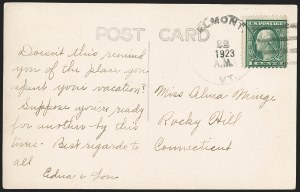 POST CARD
1923
A.M.
VT.
Doesn't this remind
you of the place you
spent your vacation?
Suppose you're ready
for another by this
time. Best regards to
all
Edna & Son
Miss Alma
Rocky Hill
Connecticut